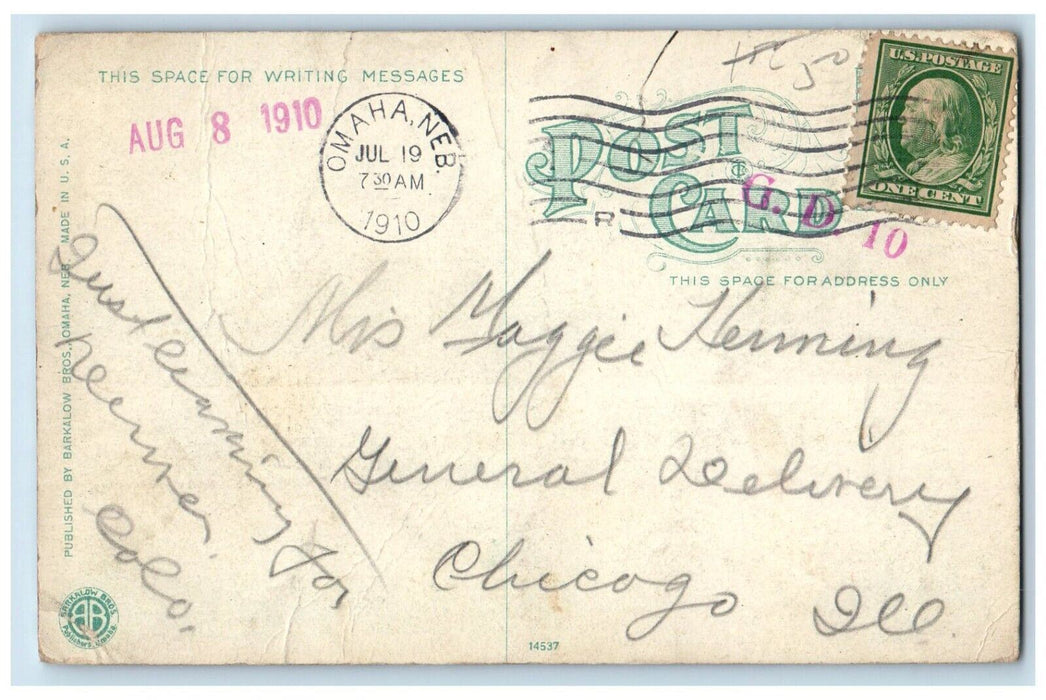 THIS SPACE FOR WRITING MESSAGES
AUG 8 1910
OMAHA, NEB.
JUL 19
7 30 AM
1910
R
POST
CARD
U.S. POSTAGE
ONE CENT
G. D 10
THIS SPACE FOR ADDRESS ONLY
Just leaving for
Denver
Colo.
Miss Maggie Henning
General Delivery
Chicago Ill.
PUBLISHED BY BARKALOW BROS., OMAHA, NEB. MADE IN U.S.A.
BARKALOW BROS.
BB
Publishers, Omaha.
14537